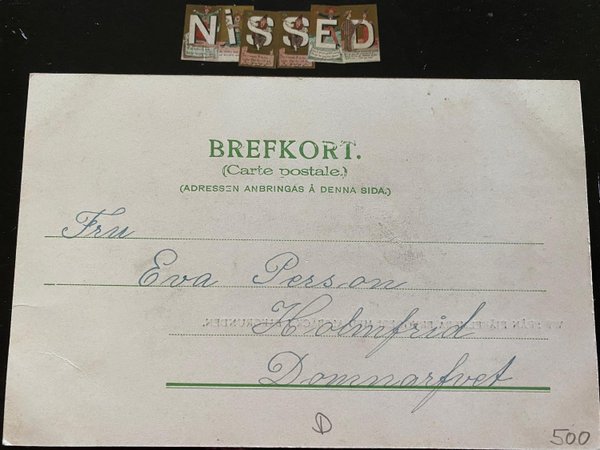 NiSSED
BREFKORT.
(Carte postale.)
(ADRESSEN ANBRINGAS Å DENNA SIDA.)
Fru
Eva Person
Holmfrid
Domnarfvet
D
500